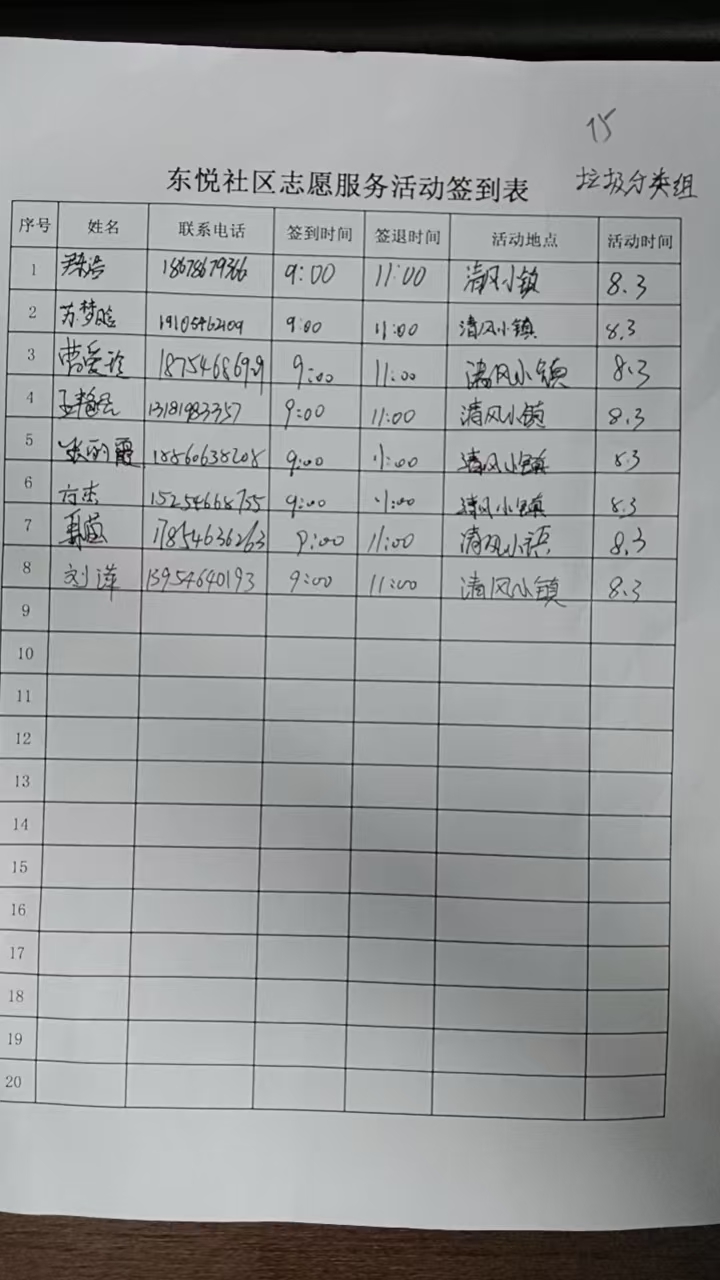 15
东悦社区志愿服务活动签到表 垃圾分类组
序号 姓名 联系电话 签到时间 签退时间 活动地点 活动时间
1 18678679366 9:00 11:00 清风小镇 8.3
2 苏梦晗 19105462109 9:00 11:00 清风小镇 8.3
3 曹爱玲 18754686929 9:00 11:00 清风小镇 8.3
4 13181983357 9:00 11:00 清风小镇 8.3
5 张丽霞 18560638208 9:00 11:00 清风小镇 8.3
6 15254668755 9:00 11:00 清风小镇 8.3
7 17854636263 9:00 11:00 清风小镇 8.3
8 刘萍 13954640193 9:00 11:00 清风小镇 8.3
9
10
11
12
13
14
15
16
17
18
19
20